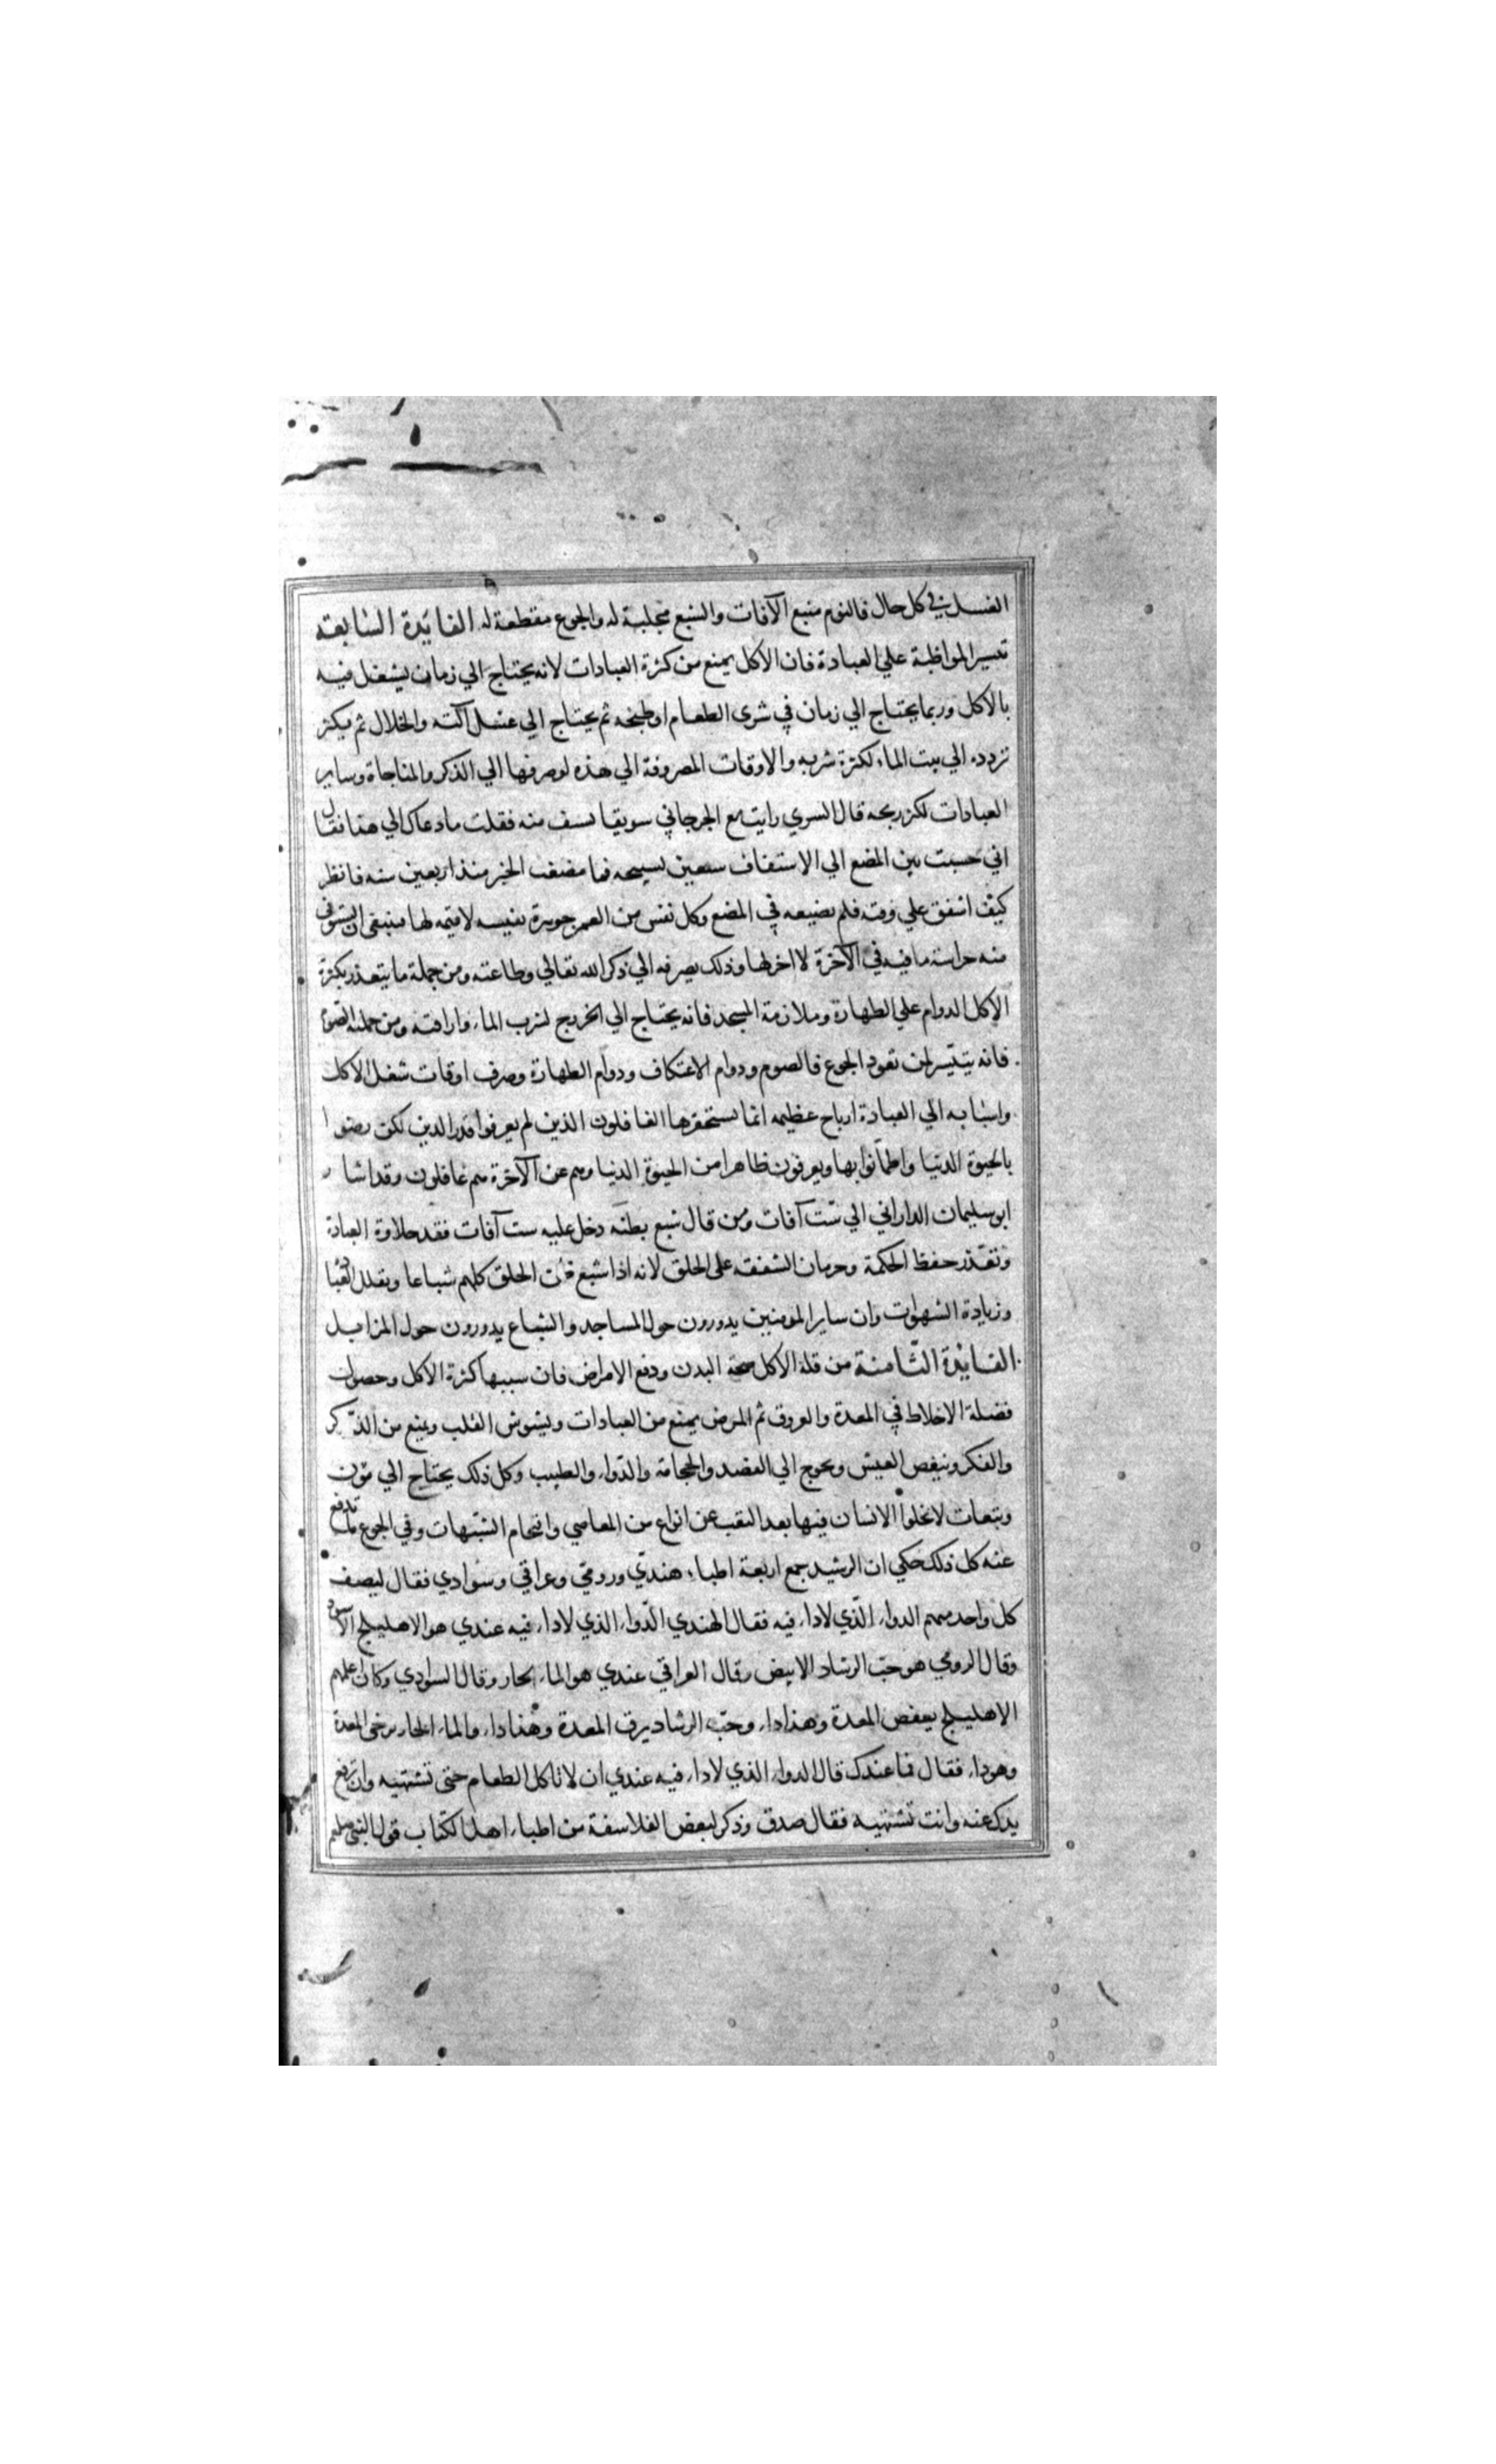 الغسل في كل حال فالنوم منبع الآفات والشبع مجلبة له والجوع مقطعة له الفايدة السابعه
تيسير المواظبة علي العبادة فان الاكل يمنع من كثرة العبادات لانه يحتاج الي زمان يشتغل فيه
بالاكل وربما يحتاج الي زمان في شرى الطعام او طبخه ثم يحتاج الي غسل آلته والخلال ثم يكثر
تردده الي بيت الماء لكثرة شربه والاوقات المصروفة الي هذه لو صرفها الي الذكر والمناجاة وساير
العبادات لكثر ربحه قال السري رايت مع الجرجاني سويقا يسف منه فقلت ما دعاك الي هذا فقال
اني حسبت بين المضع الي الاستفاف سبعين تسبيحه فما مضغت الخبز منذ اربعين سنه فانظر
كيف اشفق علي وقته فلم يضيعه في المضع وكل نفس من العمر جوهرة نفيسه لا قيمه لها فينبغي ان يستوفي
منه حراسة ما فيه في الآخرة لا اخر لها وذلك بصرفه الي ذكر الله تعالي وطاعته ومن جملة ما يتعذر بكثرة
الاكل الدوام علي الطهارة وملازمة المسجد فانه يحتاج الي الخروج لشرب الماء واراقته ومن جملته الصوم
فانه يتيسر لمن تعود الجوع فالصوم ودوام الاعتكاف ودوام الطهارة وصرف اوقات شغل الاكل
واسبابه الي العبادة ارباح عظيمه انما يستحقرها الغافلون الذين لم يعرفوا قدر الدين لكن رضوا
بالحيوة الدنيا واطمأنوا بها ويعرفون ظاهرا من الحيوة الدنيا وهم عن الآخرة هم غافلون وقد اشار
ابو سليمان الداراني الي ست آفات ومن قال شبع بطنه دخل عليه ست آفات فقد حلاوة العبادة
وتعذر حفظ الحكمة وحرمان الشفقه على الخلق لانه اذا شبع ظن الخلق كلهم شباعا وثقل العبادة
وزيادة الشهوات وان ساير المومنين يدورون حول المساجد والشباع يدورون حول المزابل
الفايدة الثامنة من قلة الاكل صحة البدن ودفع الامراض فان سببها كثرة الاكل وحصول
فضلة الاخلاط في المعدة والعروق ثم المرض يمنع من العبادات ويشوش القلب ويمنع من الذكر
والفكر وينغص العيش ويحوج الي الفصد والحجامة والدواء والطبيب وكل ذلك يحتاج الي مؤن
وتبعات لا يخلوا الانسان فيها بعد التعب عن انواع من المعاصي واقتحام الشبهات وفي الجوع ما يدفع
عنه كل ذلك حكي ان الرشيد جمع اربعة اطباء هندي ورومي وعراقي وسوادي فقال ليصف
كل واحد منهم الدواء الذي لا داء فيه فقال الهندي الدواء الذي لا داء فيه عندي هو الاهليلج الاسود
وقال الرومي هو حب الرشاد الابيض وقال العراقي عندي هو الماء الحار وقال السوادي وكان اعلمهم
الاهليلج يعفص المعدة وهذا داء وحب الرشاد يرق المعدة وهذا داء والماء الحار يرخي المعدة
وهو داء فقال فما عندك قال الدواء الذي لا داء فيه عندي ان لا تاكل الطعام حتى تشتهيه وان ترفع
يدك عنه وانت تشتهيه فقال صدق وذكر لبعض الفلاسفة من اطباء اهل الكتاب قول النبي صلعم